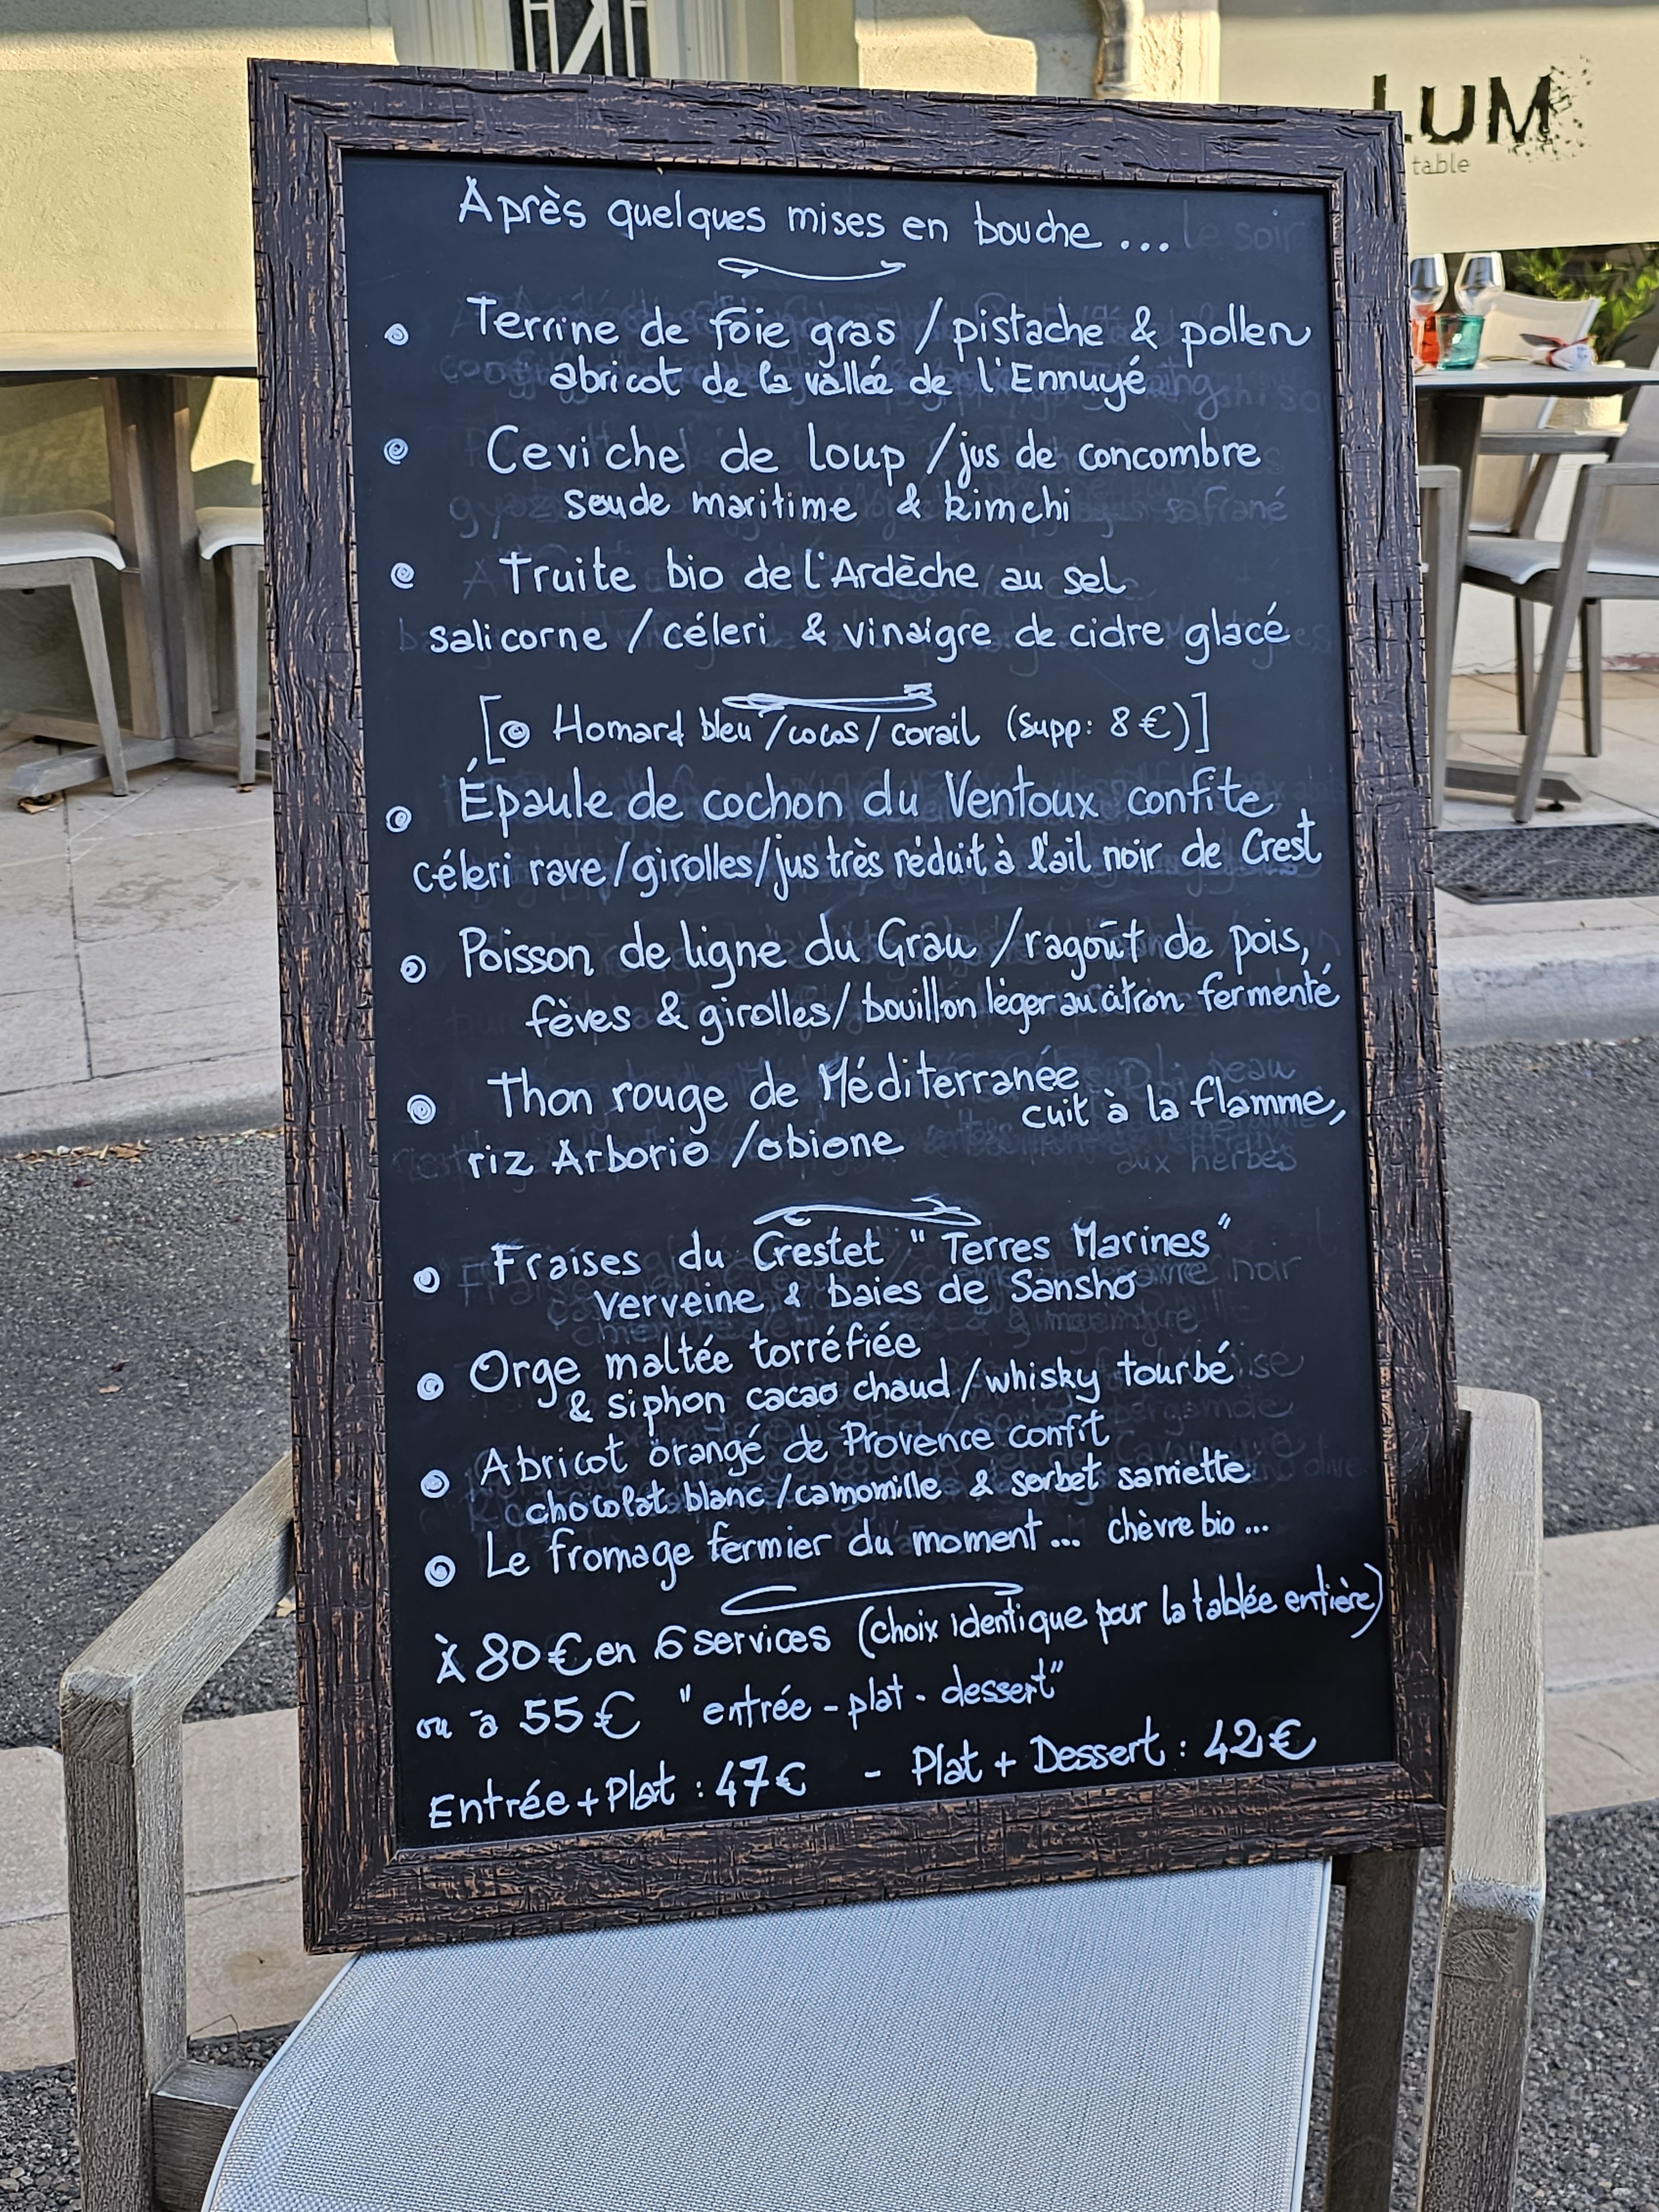 LUM
table
Après quelques mises en bouche...
Terrine de foie gras / pistache & pollen
abricot de la vallée de l'Ennuyé
Ceviche de loup / jus de concombre
soude maritime & kimchi
Truite bio de l'Ardèche au sel
salicorne / céleri & vinaigre de cidre glacé
[ Homard bleu / cocos / corail (supp: 8€)]
Épaule de cochon du Ventoux confite
céleri rave / girolles / jus très réduit à l'ail noir de Crest
Poisson de ligne du Grau / ragoût de pois,
fèves & girolles / bouillon léger au citron fermenté
Thon rouge de Méditerranée
cuit à la flamme,
riz Arborio / obione
Fraises du Crestet "Terres Marines"
verveine & baies de Sansho
Orge maltée torréfiée
& siphon cacao chaud / whisky tourbé
Abricot orangé de Provence confit
chocolat blanc / camomille & sorbet sarriette
Le fromage fermier du moment... chèvre bio...
À 80€ en 6 services (choix identique pour la tablée entière)
ou à 55€ "entrée - plat - dessert"
Entrée + Plat : 47€ - Plat + Dessert : 42€